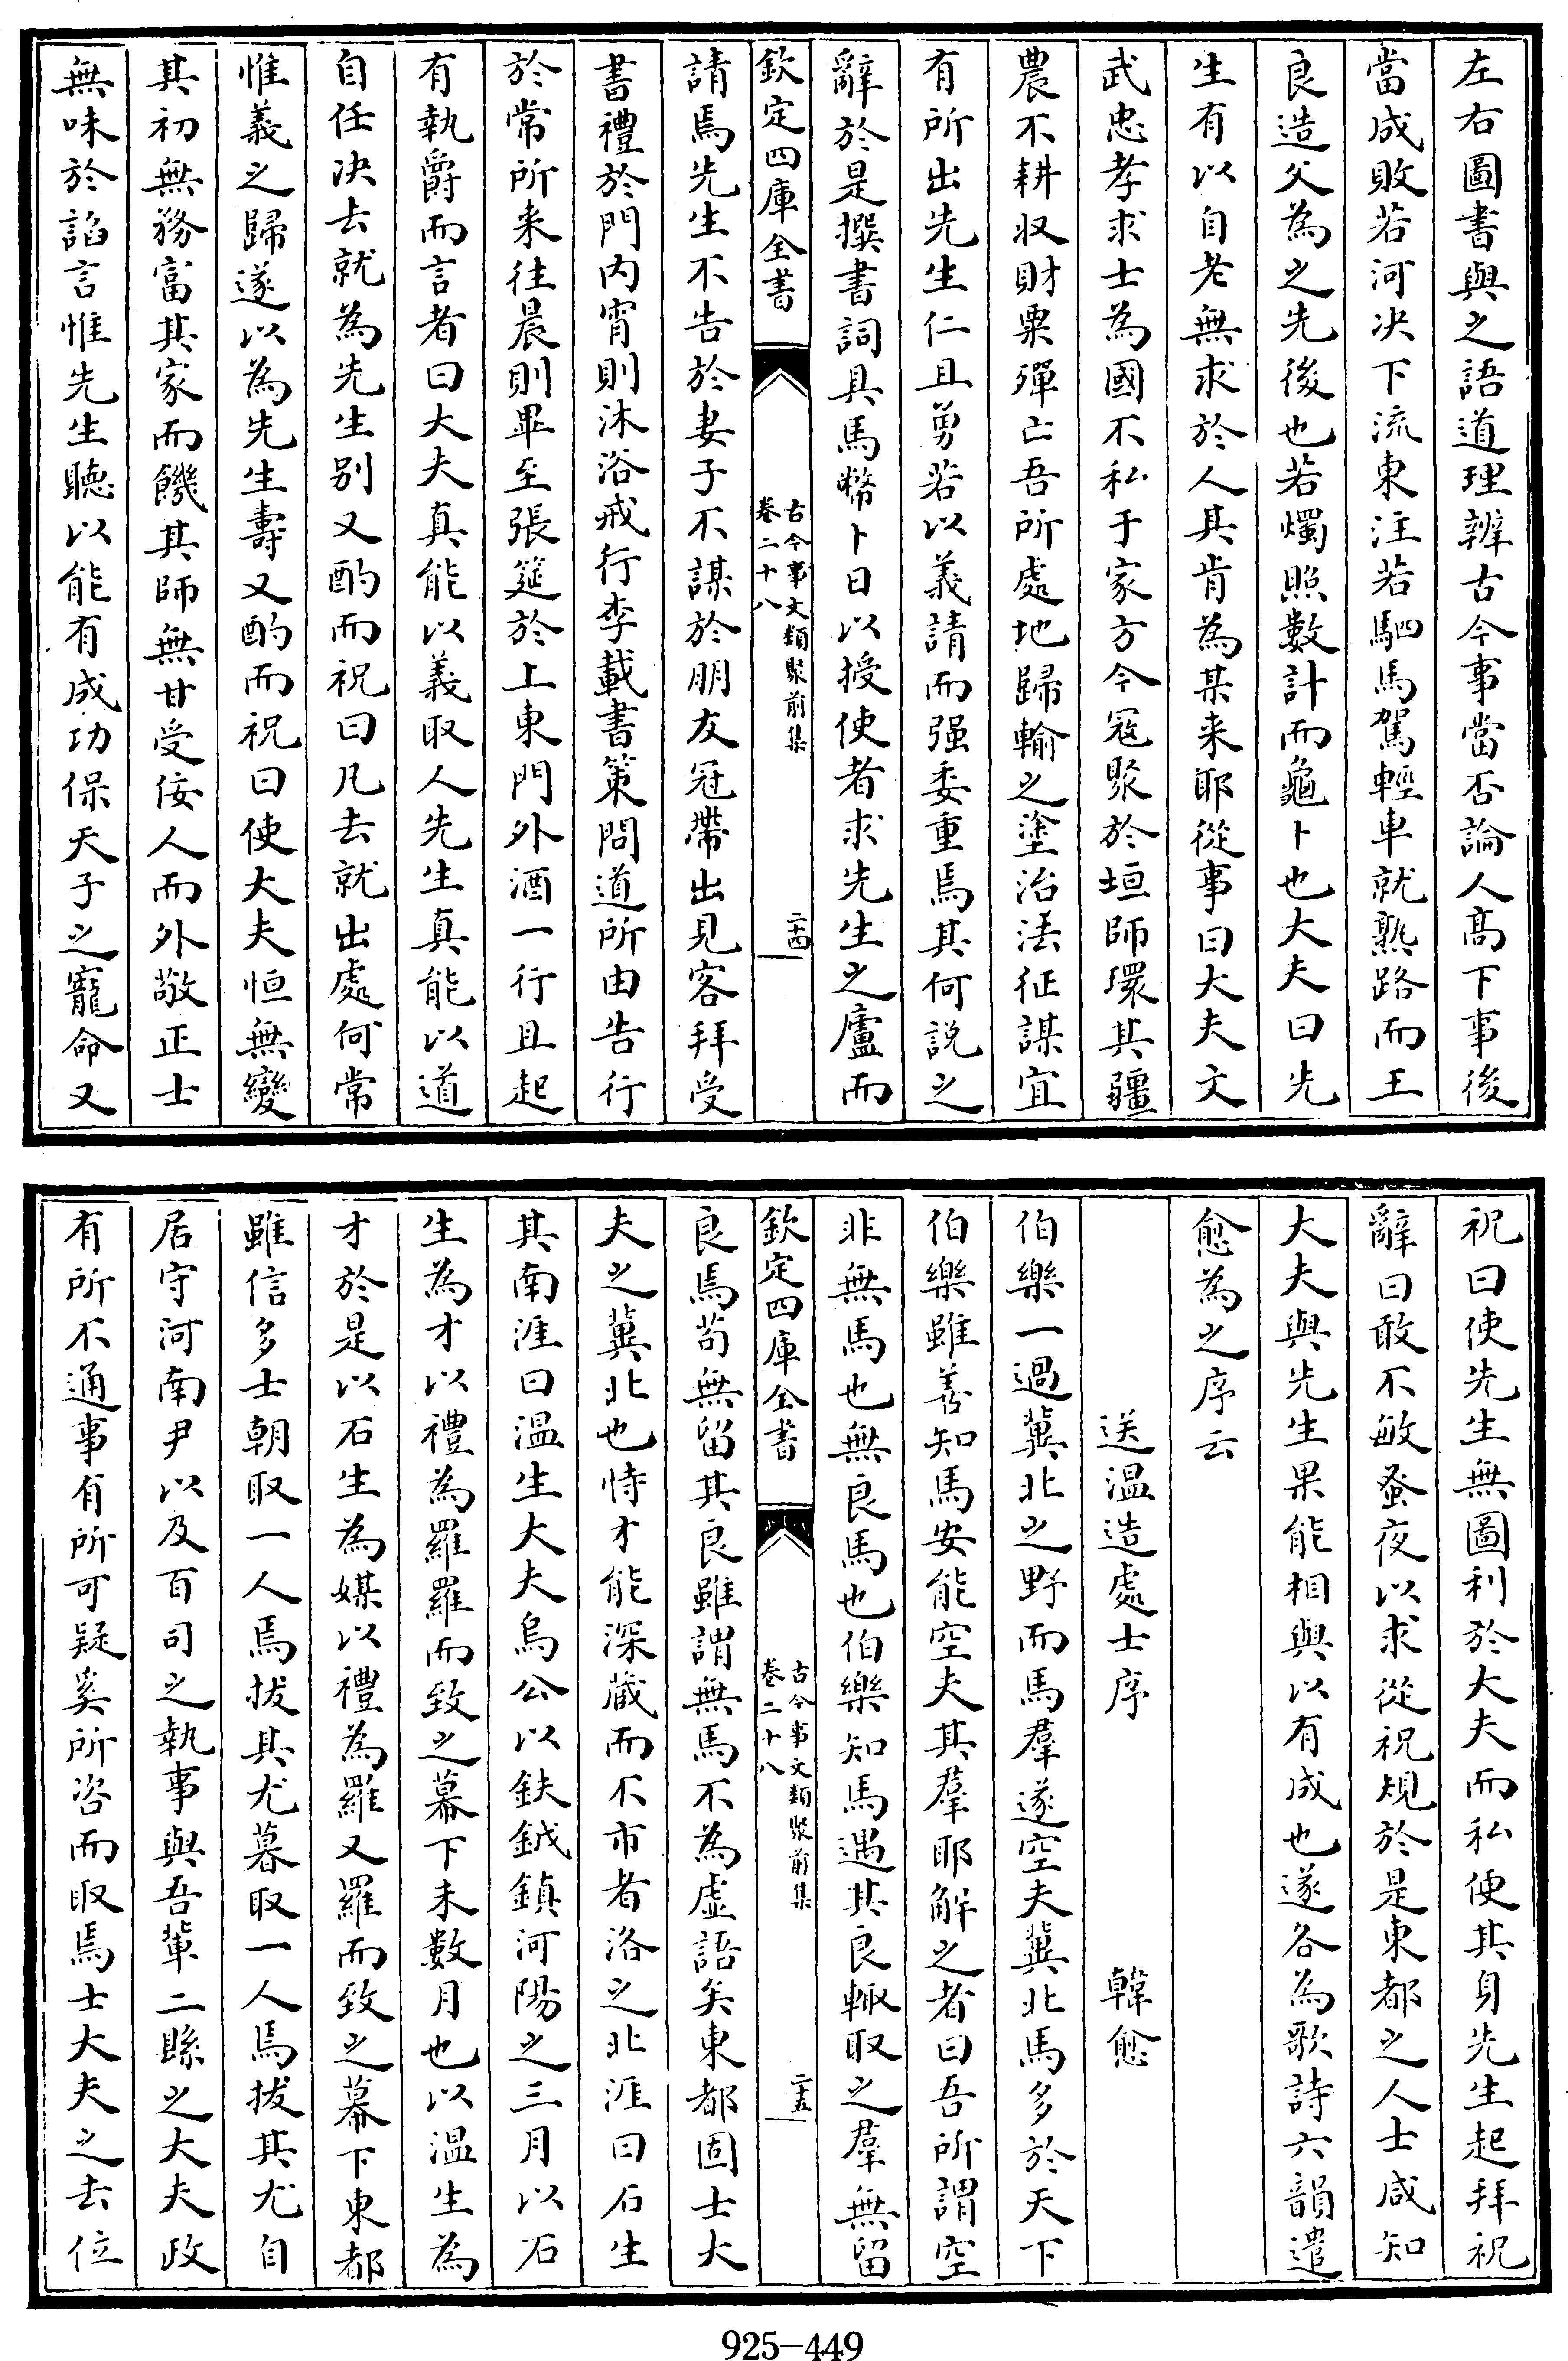 左右圖書與之語道理辨古今事當否論人髙下事後
當成敗若河决下流東注若駟馬駕輕車就熟路而王
良造父為之先後也若燭照數計而龜卜也大夫曰先
生有以自老無求於人其肯為某来耶從事曰大夫文
武忠孝求士為國不私于家方今冦聚於垣師環其疆
農不耕收財粟殫亡吾所處地歸輸之塗治法征謀宜
有所出先生仁且勇若以義請而强委重焉其何説之
辭於是撰書詞具馬幣卜日以授使者求先生之廬而
欽定四庫全書
古今事文類聚前集
卷二十八
二十四
請焉先生不告於妻子不謀於朋友冠帶出見客拜受
書禮於門内宵則沐浴戒行李載書策問道所由告行
於常所来往晨則畢至張筵於上東門外酒一行且起
有執爵而言者曰大夫真能以義取人先生真能以道
自任决去就為先生别又酌而祝曰凡去就出處何常
惟義之歸遂以為先生壽又酌而祝曰使大夫恒無變
其初無務富其家而饑其師無甘受佞人而外敬正士
無味於諂言惟先生聽以能有成功保天子之寵命又
祝曰使先生無圖利於大夫而私便其身先生起拜祝
辭曰敢不敏蚤夜以求從祝規於是東都之人士咸知
大夫與先生果能相與以有成也遂各為歌詩六韻遣
愈為之序云
送温造處士序 韓愈
伯樂一過冀北之野而馬羣遂空夫冀北馬多於天下
伯樂雖善知馬安能空夫其羣耶解之者曰吾所謂空
非無馬也無良馬也伯樂知馬遇其良輙取之羣無留
欽定四庫全書
古今事文類聚前集
卷二十八
二十五
良焉苟無留其良雖謂無馬不為虚語矣東都固士大
夫之冀北也恃才能深蔵而不市者洛之北涯曰石生
其南涯曰温生大夫烏公以鈇鉞鎮河陽之三月以石
生為才以禮為羅羅而致之幕下未數月也以温生為
才於是以石生為媒以禮為羅又羅而致之幕下東都
雖信多士朝取一人焉拔其尤暮取一人焉拔其尤自
居守河南尹以及百司之執事與吾軰二縣之大夫政
有所不通事有所可疑奚所咨而取焉士大夫之去位
925-449